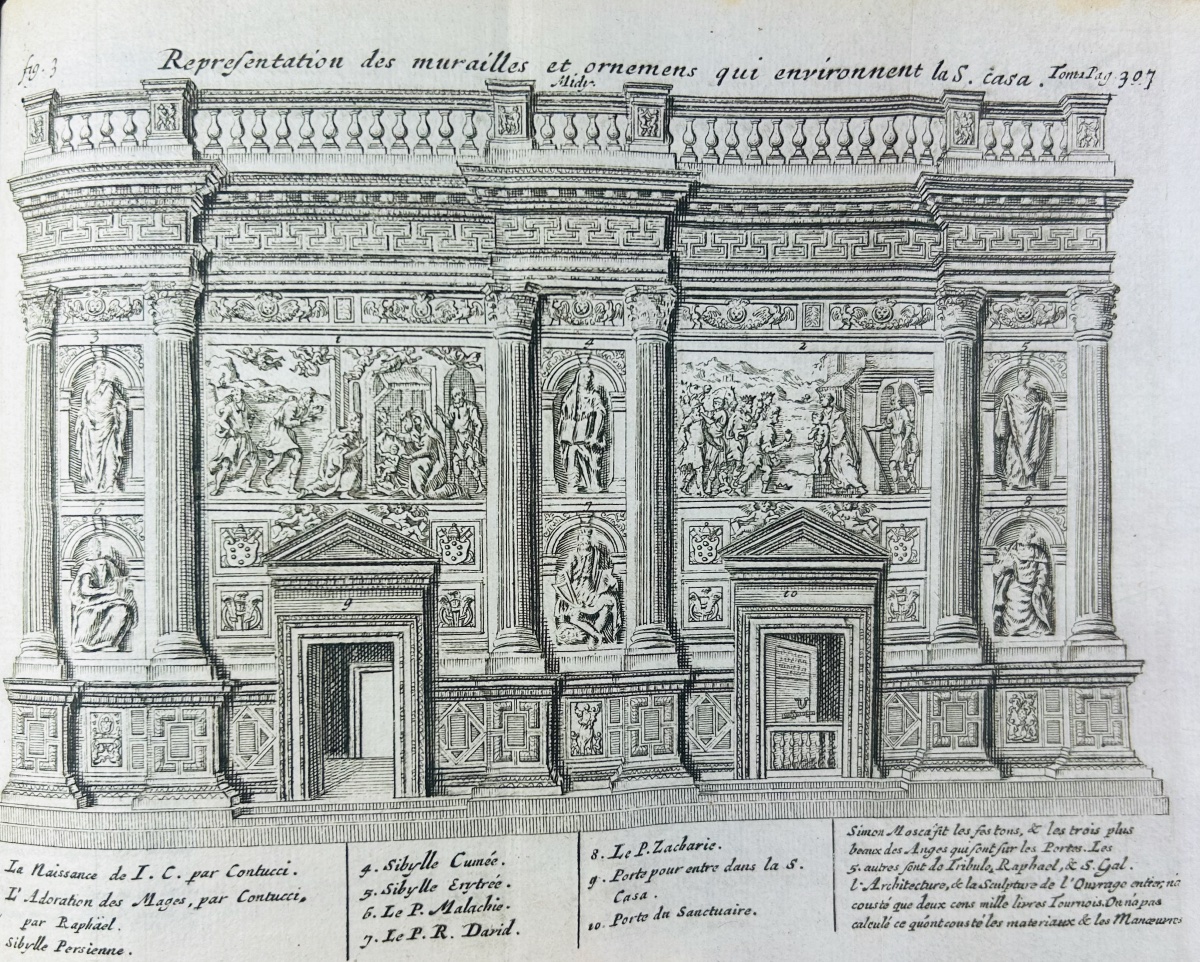 fig. 3
Representation des murailles et ornemens qui environnent la S. casa. Tom 1 Pag. 307
Midy.
1
2
3
4
5
6
7
8
9
10
La Naissance de I. C. par Contucci.
L'Adoration des Mages, par Contucci,
par Raphael.
Sibylle Persienne.
4. Sibylle Cumée.
5. Sibylle Erytrée.
6. Le P. Malachie.
7. Le P. R. David.
8. Le P. Zacharie.
9. Porte pour entre dans la S.
Casa.
10. Porte du Sanctuaire.
Simon Mosca fit les festons, & les trois plus
beaux des Anges qui sont sur les Portes. Les
5. autres sont de Tribulo, Raphael, & S. Gal.
l'Architecture, & la Sculpture de l'Ouvrage entier, na
cousté que deux cens mille livres Tournois. On na pas
calculé ce qu'ont cousté les materiaux & les Manœuvres